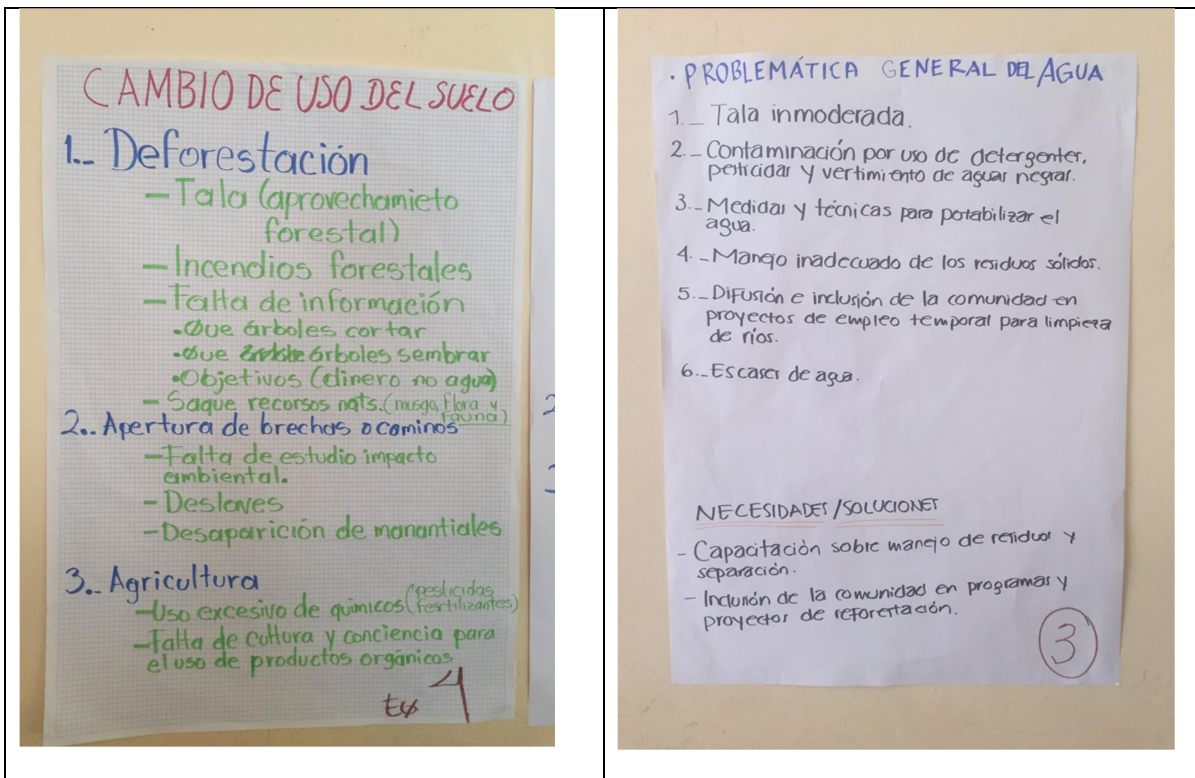 CAMBIO DE USO DEL SUELO
1.- Deforestación
- Tala (aprovechamieto
forestal)
- Incendios forestales
- Falta de información
• Que árboles cortar
• Que árboles sembrar
• Objetivos (dinero no agua)
- Saque recursos nats. (musgo, flora y
fauna)
2.. Apertura de brechas o caminos
- Falta de estudio impacto
ambiental.
- Deslaves
- Desaparición de manantiales
3.- Agricultura
- Uso excesivo de químicos (pesticidas
fertilizantes)
- Falta de cultura y conciencia para
el uso de productos orgánicos
4
2
3
. PROBLEMÁTICA GENERAL DEL AGUA
1._ Tala inmoderada.
2.- Contaminación por uso de detergentes,
pesticidas y vertimiento de aguas negras.
3.- Medidas y técnicas para potabilizar el
agua.
4.- Manejo inadecuado de los residuos sólidos.
5.- Difusión e inclusión de la comunidad en
proyectos de empleo temporal para limpieza
de ríos.
6.- Escases de agua.
NECESIDADES/SOLUCIONES
- Capacitación sobre manejo de residuos y
separación.
- Inclusión de la comunidad en programas y
proyectos de reforestación.
3